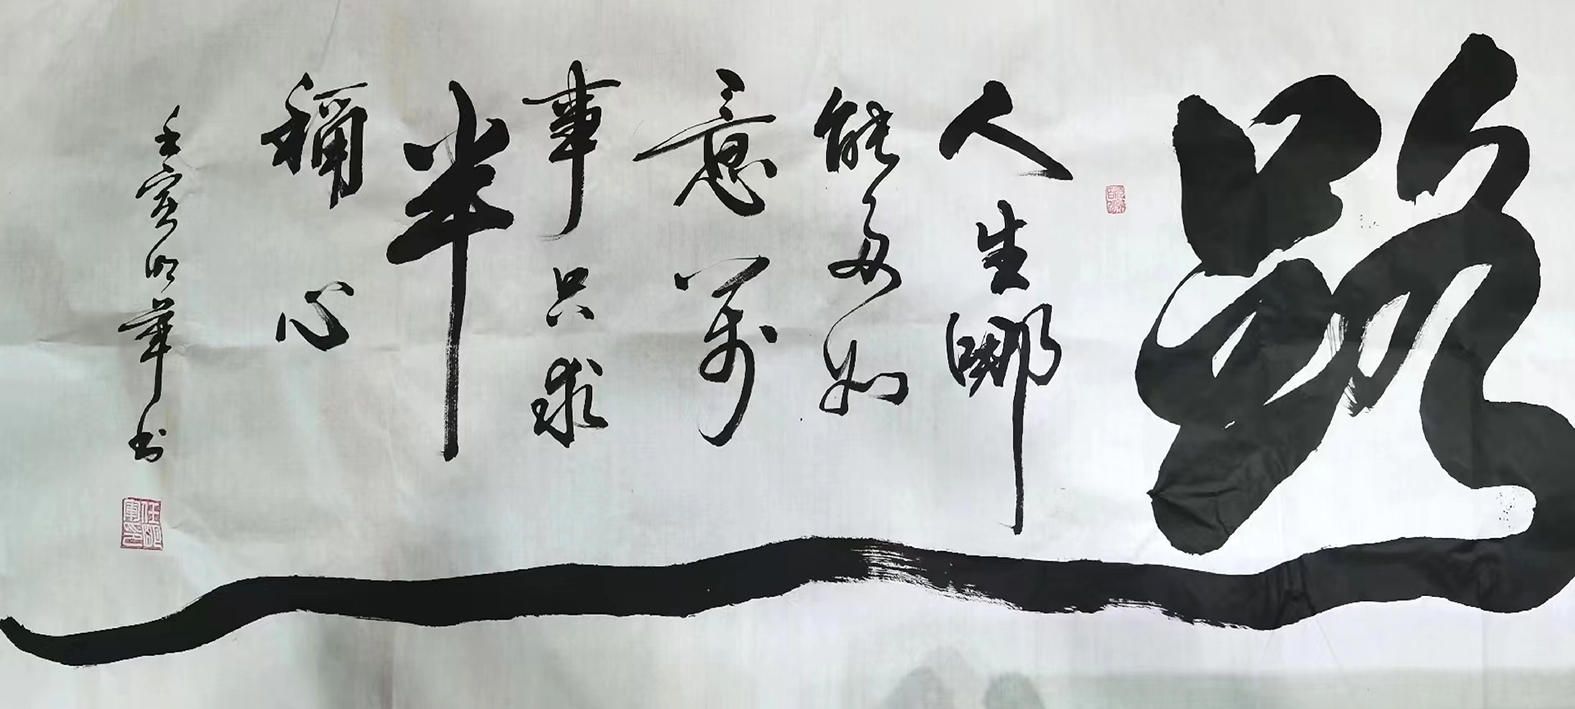 路
人生哪
能多如
意万
事只求
半
称心
壬寅明華书